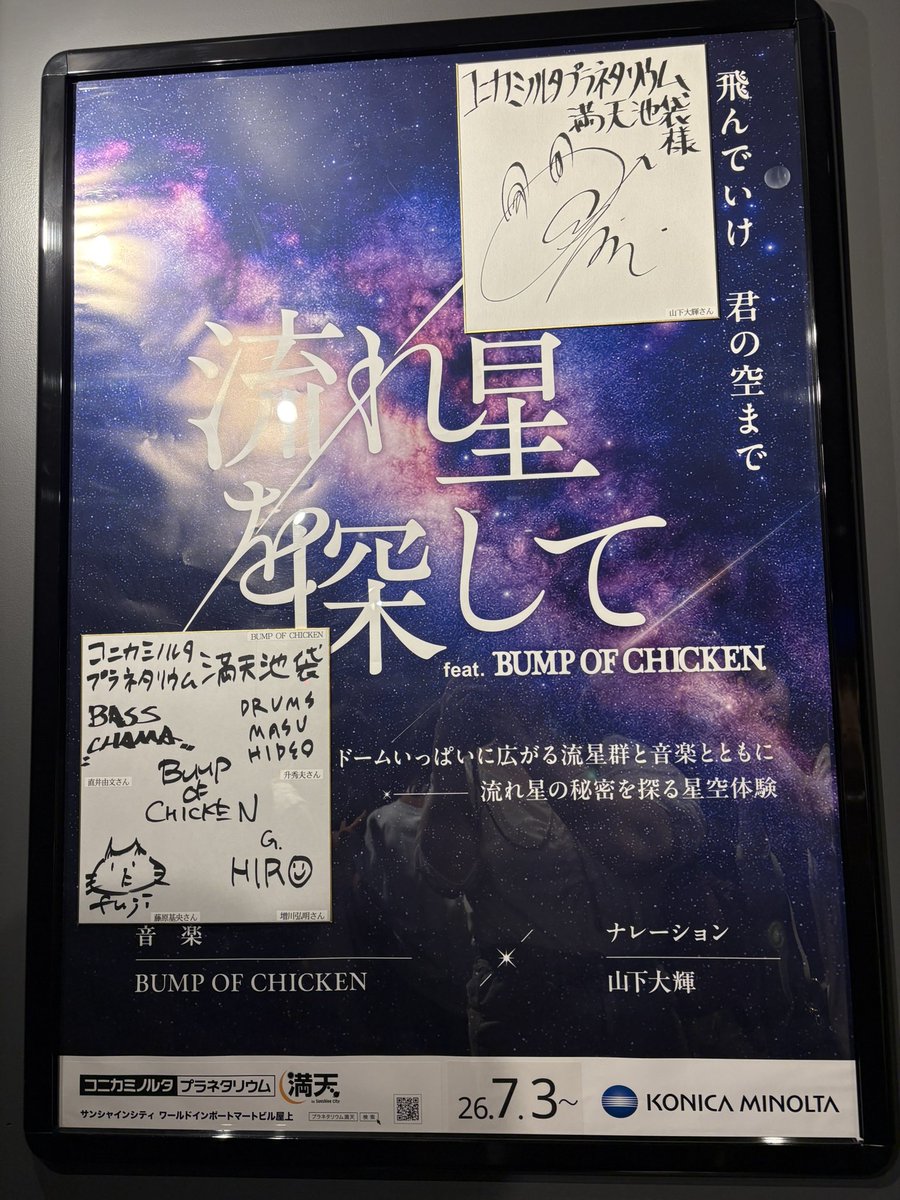 コニカミノルタプラネタリウム
満天池袋様
山下大輝さん
飛んでいけ 君の空まで
流れ星
を探して
feat. BUMP OF CHICKEN
BUMP OF CHICKEN
コニカミノルタ
プラネタリウム 満天池袋
BASS
CHAMA
直井由文さん
DRUMS
MASU
HIDEO
升秀夫さん
BUMP
OF
CHICKEN
fuji
藤原基央さん
G.
HIRO
増川弘明さん
ドームいっぱいに広がる流星群と音楽とともに
流れ星の秘密を探る星空体験
音楽
BUMP OF CHICKEN
ナレーション
山下大輝
コニカミノルタ プラネタリウム 満天 in Sunshine City
サンシャインシティ ワールドインポートマートビル屋上
プラネタリウム満天 検索
26.7.3~
KONICA MINOLTA